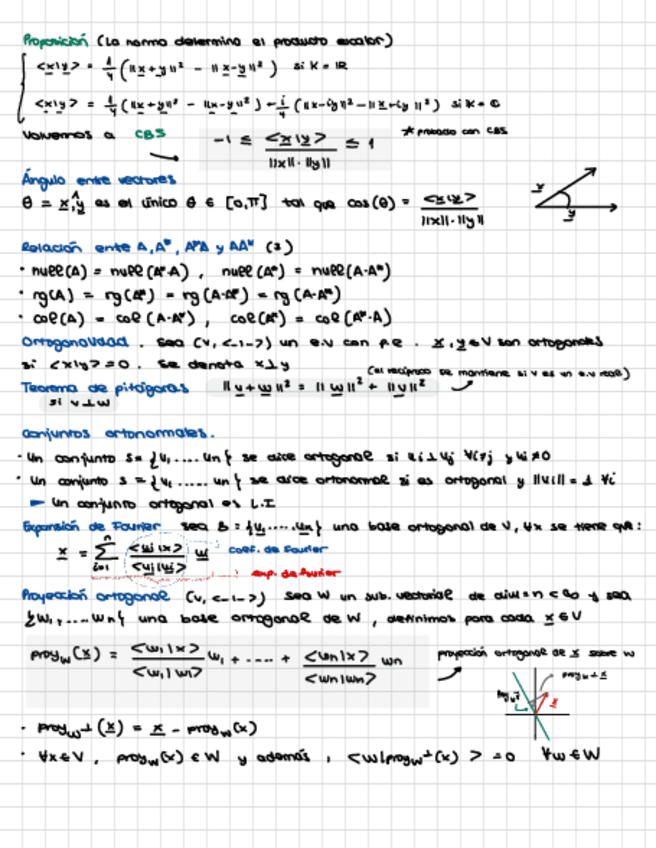 Proposición (La norma determina el producto escalar)
<x|y> = 1/4 (||x+y||² - ||x-y||²) si K = ℝ
<x|y> = 1/4 (||x+y||² - ||x-y||²) + i/4 (||x-iy||² - ||x+iy||²) si K = ℂ
Volvemos a CBS
-1 ≤ <x|y> / ||x||·||y|| ≤ 1
* probado con CBS
Ángulo entre vectores
θ = x,y es el único θ ∈ [0,π] tal que cos(θ) = <x|y> / ||x||·||y||
x
y
Relación entre A, A*, A*A y AA* (2)
· null(A) = null(A*·A), null(A*) = null(A·A*)
· rg(A) = rg(A*) = rg(A·A*) = rg(A·A*)
· col(A) = col(A·A*), col(A*) = col(A*·A)
Ortogonalidad. Sea (V, <-|->) un e.v con p.e. x,y ∈ V son ortogonales
si <x|y> = 0. Se denota x⊥y
(el recíproco se mantiene si V es un e.v real)
Teorema de pitágoras ||v+w||² = ||w||² + ||v||²
si v⊥w
Conjuntos ortonormales.
· Un conjunto S = {u₁.....un} se dice ortogonal si ui⊥uj ∀i≠j y ui≠0
· Un conjunto S = {u₁.....un} se dice ortonormal si es ortogonal y ||ui|| = 1 ∀i
Un conjunto ortogonal es L.I
Expansión de Fourier Sea B = {u₁.....un} una base ortogonal de V, ∀x se tiene que:
x = Σ i=1 n <ui|x> / <ui|ui> ui coef. de Fourier
exp. de Fourier
Proyección ortogonal (V, <-|->) Sea W un sub. vectorial de dim = n < ∞ y sea
{w₁,....wn} una base ortogonal de W, definimos para cada x ∈ V
proy_W(x) = <w₁|x> / <w₁|w₁> w₁ + ..... + <wn|x> / <wn|wn> wn
proyección ortogonal de x sobre W
x
· proy_W⊥(x) = x - proy_W(x)
· ∀x∈V, proy_W(x) ∈ W y además, <w|proy_W⊥(x)> = 0 ∀w ∈ W